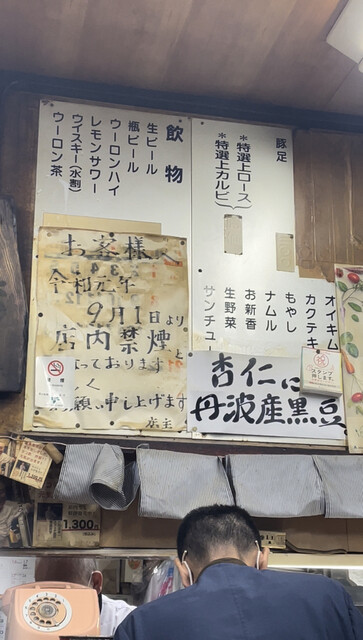 豚足
*特選上ロース
*特選上カルビ
オイキム
カクテキ
もやし
ナムル
お新香
生野菜
サンチュ
飲物
生ビール
瓶ビール
ウーロンハイ
レモンサワー
ウイスキー(水割)
ウーロン茶
お客様へ
令和元年
9月1日より
店内禁煙と
っております
く
申し上げます
店主
杏仁に
丹波産黒豆
スタンプ
押します。
1,300円